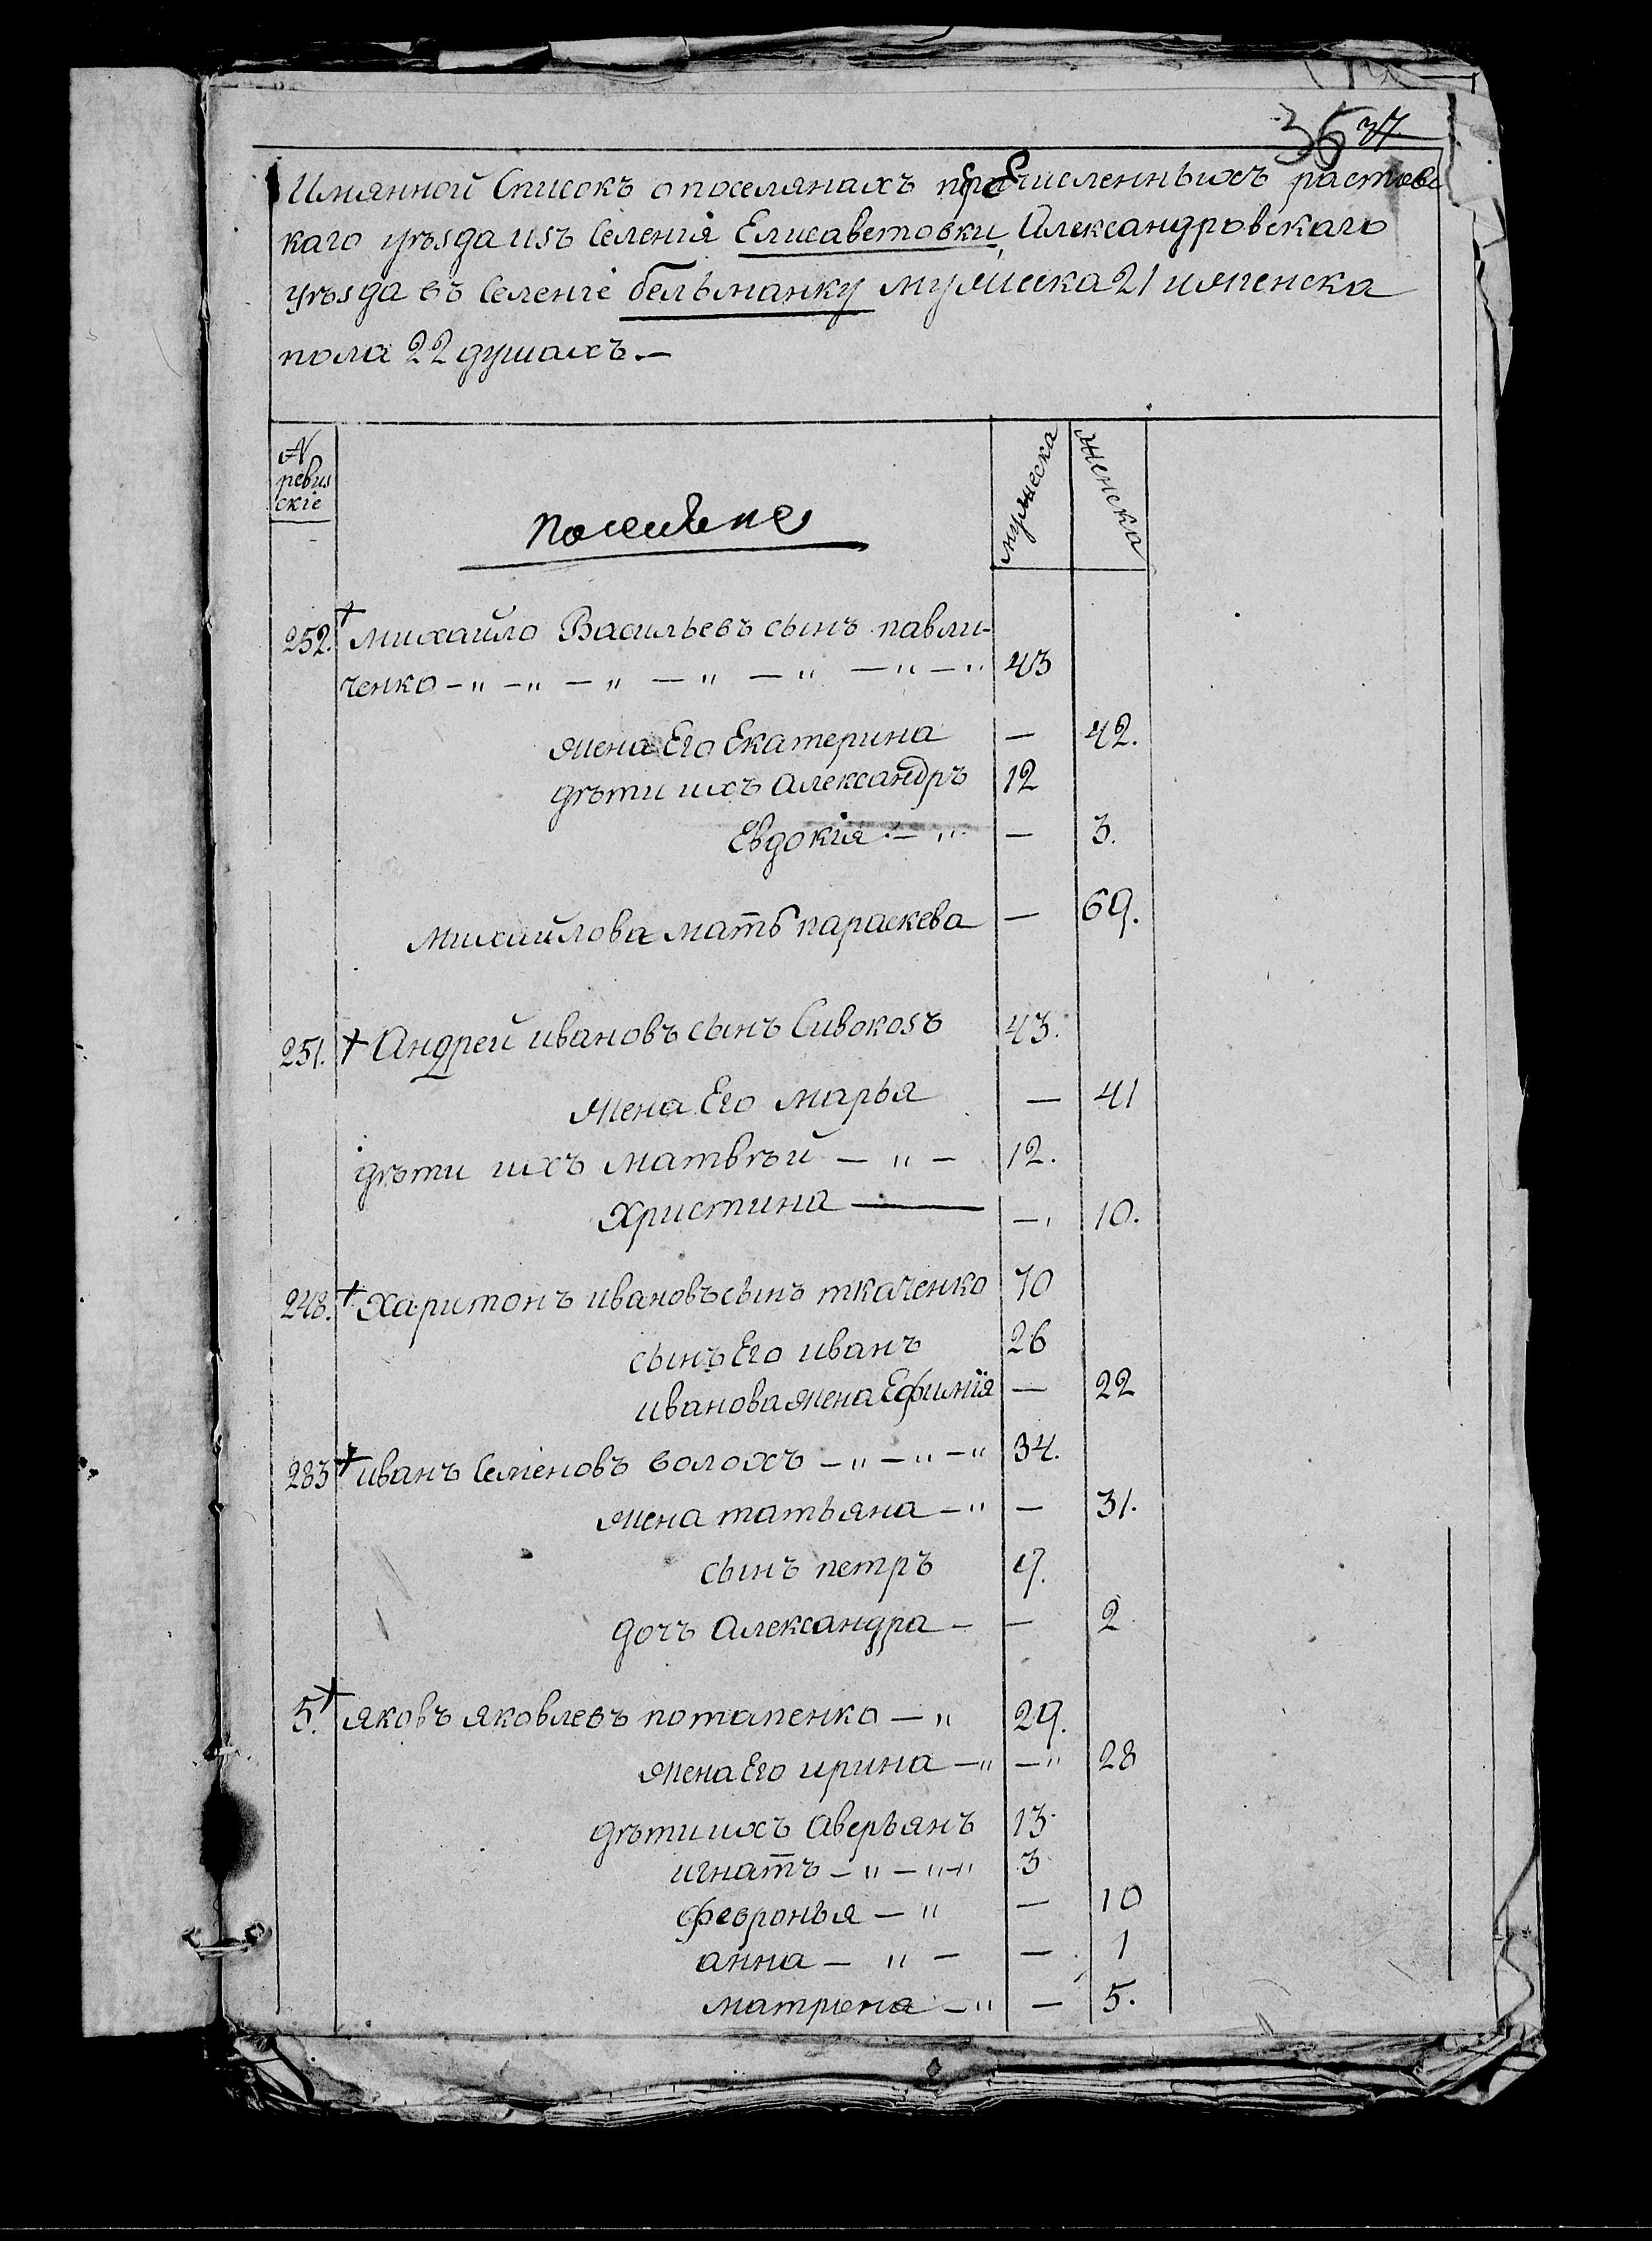 36 37
Имянной Списокъ о поселянахъ пречисленныхъ растовс
каго уѣзда изъ Селенія Елисаветовки Александровскаго
уѣзда въ Селеніе бельманку мужеска 21 и женска
пола 22 душахъ.—
№ ревизскіе
Поселяне
мужеска
женска
252. + михайло Васильевъ сынъ павли-
ченко —„—„—„—„—„—„—„ 43
жена Его Екатерина — 42.
дѣти ихъ александръ 12
Евдокія —„ — 3.
михайлова мать параскева — 69.
251. + Андрей ивановъ сынъ Сивокозъ 43.
жена Его марья — 41
дѣти ихъ матвѣй —„— 12.
христина — — 10.
248. + харитонъ ивановъ сынъ ткаченко 70
сынъ Его иванъ 26
иванова жена Ефимія — 22
283 + иванъ Семеновъ волохъ —„—„—„ 34.
жена татьяна —„ — 31.
сынъ петръ 9.
дочъ александра — — 2
5. + яковъ яковлевъ потапенко —„ 29.
жена Его ирина —„ —„ 28
дѣти ихъ аверьянъ 13
игнатъ —„—„—„ 3
февронья —„ — 10
анна —„— — 1
матрена —„ — 5.